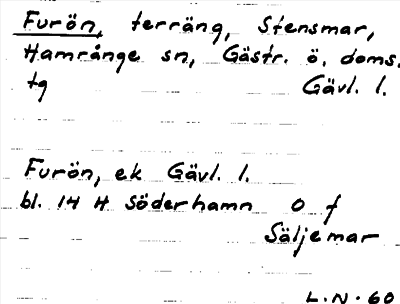 Furön, terräng, Stensmar,
Hamrånge sn, Gästr. ö. doms.
tg Gävl. l.
Furön, ek Gävl. l.
bl. 14 H Söderhamn 0 f
Säljemar
L.N. 60